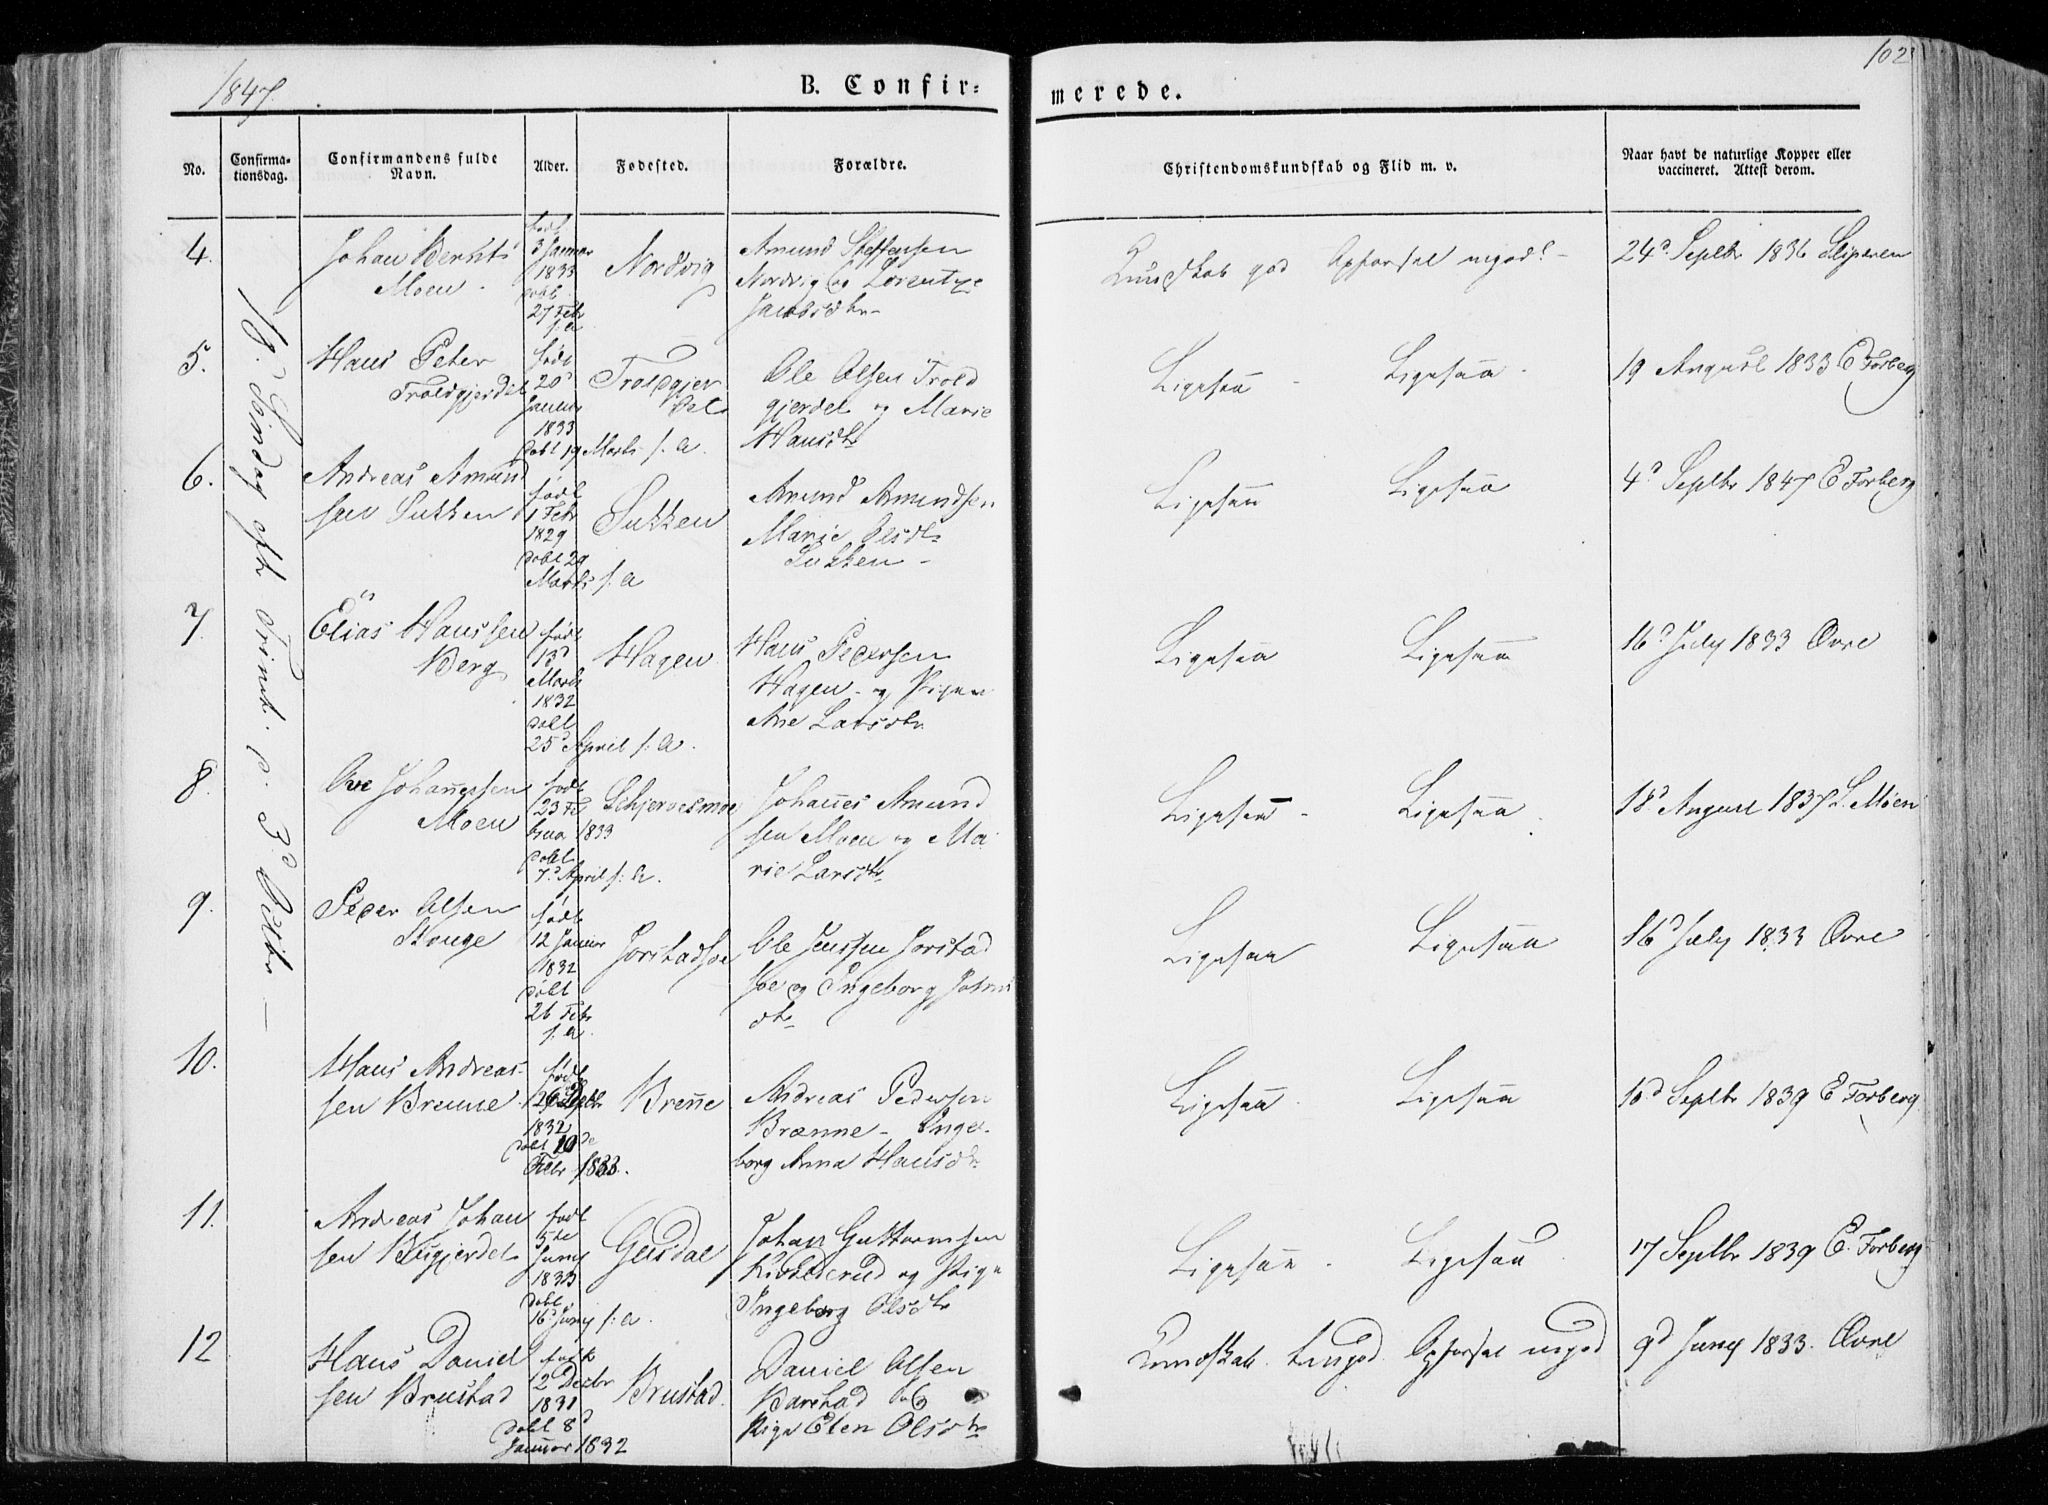 1847.
B. Confir-
merede.
102
No.
Confirma-
tionsdag.
Confirmandens fulde
Navn.
Alder.
Fødested.
Forældre.
Christendomskundskab og Flid m. v.
Naar havt de naturlige Kopper eller
vaccineret. Attest derom.
18. Søndag eftr Trinit. d. 3d Octbr —
4.
Johan Bernts
Moen -
født
3 Januar
1833
døbt
27 Febr
s. a
Nordvig
Amund Steffensen
Nordvig og Lorentze
Jacobsdtr
Kundskab god Opførsel mgod -
24d Septbr 1836
5.
Hans Peter
Troldgjerdet
født
20d
Januar
1833
døbt 19 Marts s. a.
Troldgjer
det
Ole Olsen Trold
gjerdet og Marie
Hansdtr
Ligesaa - Ligesaa -
19 August 1833 E Forberg
6.
Andreas Amund
sen Sukken
født
1 Febr
1829
døbt 29
Marts s. a
Sukken
Amund Amundsen
Marie Olsdtr
Sukken -
Ligesaa Ligesaa
4d Septbr 1847 E Forberg
7.
Elias Hanssen
Berg
født
13d
Marts
1832
døbt
25d April s. a.
Hagen
Hans Pedersen
Hagen - og Pigen
Ane Larsdtr
Ligesaa Ligesaa
16d July 1833 Øvre
8.
Ove Johannessen
Moen
født
23 Fe
brua 1833
døbt
7d April s. a.
Schjervesmoe
Johannes Amund
sen Moen og Ma
rie Larsdtr
Ligesaa - Ligesaa
18d August 1837 L. Moen
9.
Peder Olsen
Houge
født
12 Januar
1832
døbt
26 Febr
s. a.
Jørstadhoe
Ole Jenssen Jørstad
hoe og Ingeborg Johns
dtr
Ligesaa Ligesaa
16d July 1833 Øvre
10.
Hans Andreas-
sen Brenne
født
1832
døbt 10de
Febr 1833.
Brenne
Andreas Pedersen
Brænne - Inge-
borg Anna Hansdtr
Ligesaa Ligesaa
10d Septbr 1839 E Forberg
11.
Andreas Johan
sen
født
5de
Juny
1833
døbt
16d Juny s. a.
Gusdal
Johan Guttormsen
og Pige
Ingeborg Olsdtr
Ligesaa - Ligesaa
17 Septbr 1839 E. Forberg
12
Hans Daniel
sen Brustad
født
2 Decbr
1831
døbt 8d
Januar 1832
Brustad.
Daniel Olsen
og
Pige Elen Olsdtr
Kundskab temgod. Opførsel mgod
9d Juny 1833. Øvre